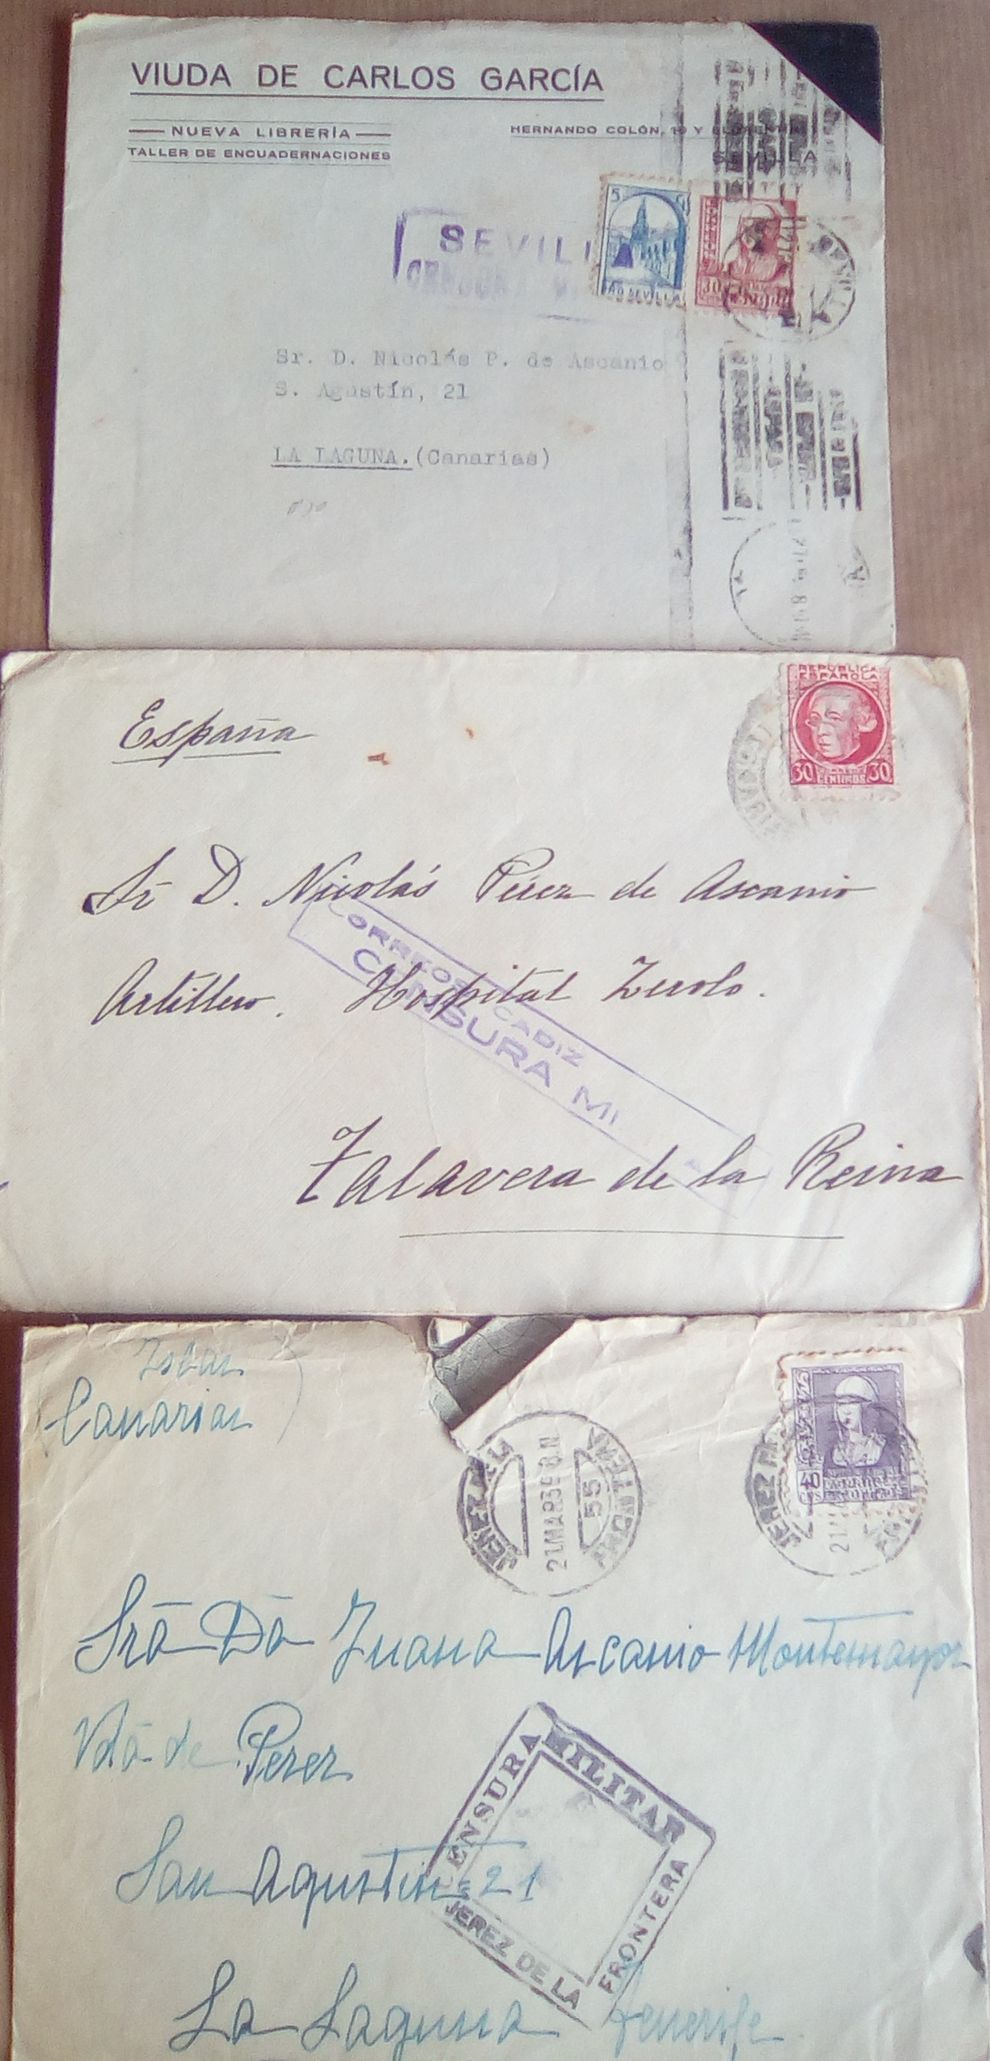 VIUDA DE CARLOS GARCÍA
NUEVA LIBRERÍA
TALLER DE ENCUADERNACIONES
HERNANDO COLÓN, Y
SEVILLA
SEVILL
CENSURA
5
PRO SEVILLA
30
Sr. D. Nicolás P. de Ascanio
S. Agustín, 21
LA LAGUNA. (Canarias)
España
REPUBLICA
ESPAÑOLA
30 CENTIMOS 30
Sr D. Nicolás Pérez de Ascanio
Artillero. Hospital Zerolo.
CORREOS CADIZ
CENSURA MI
Talavera de la Reina
Islas
Canarias
JEREZ
21 MAR 39 8.N
55
FRONTERA
40
CTS
JEREZ
21
Sra Da Juana Ascanio Montemayor
Vda de Perez
San Agustin 21
CENSURA MILITAR
JEREZ DE LA FRONTERA
La Laguna Tenerife